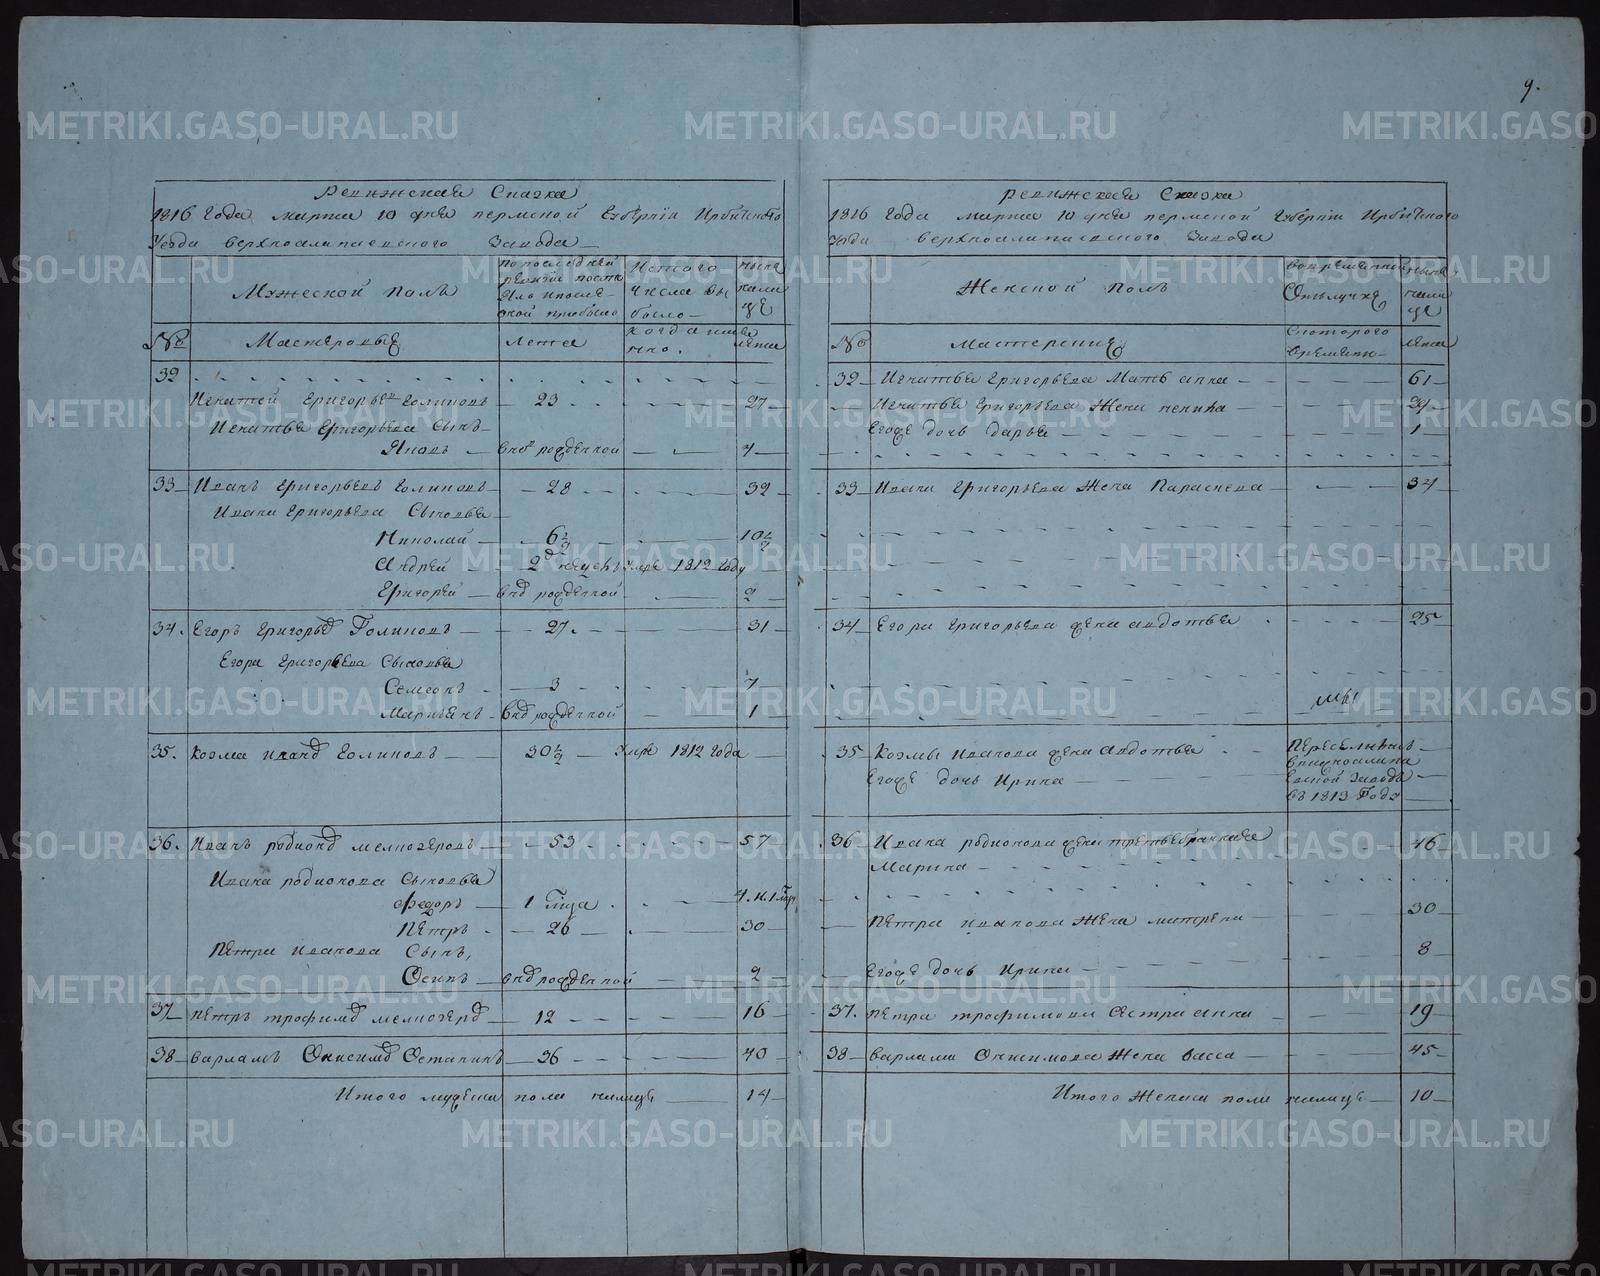 9.
Ревижская Сказка
1816 Года марта 10 дня пермской Губернїи Ирбитского
Уезда верхнеалапаевского Завода
Мужеской полъ
по последней ревизїи состо
яло и после
оной прибыло
Изтого
числа вы
было
ныне
нали
це
№
Мастеровые
лета
когда имян
но.
лета
32
Игнатей Григорьев Голиковъ 23 27
Игнатья Григорьева Сынъ
Яковъ вновь рожденной 4
33 Иванъ Григорьевъ Голиковъ 28 32
Ивана Григорьева Сыновья
Николай 6½ 10½
Андрей 2 умре 1812 году
Григорей внов рожденной 2
34. Егоръ Григорьев Голиковъ 27. 31
Егора Григорьева Сыновья
Семеонъ 3 7
внов рожденной 1
35. Козма Иванов Голиковъ 30½ умре 1812 года
36. Иванъ родионов мелкозеровъ 53 57
Ивана родионова Сыновья
федоръ 1 Года
Петръ 26 30
Петра Иванова Сынъ,
Осипъ внов рожденной 2
37 петръ трофимов мелкозеров 12 16
38 варламъ Онисимов Останинъ 36 40
Итого мужеска пола налице 14
Ревижская Сказка
1816 Года марта 10 дня пермской Губернїи Ирбитского
Уезда верхнеалапаевского Завода
Женской полъ
вовременной
Отълучке
ныне
нали
це
№
Мастерские
Скоторого
времени
лета
32 Игнатья Григорьева Мать анна 61
Игнатья Григорьева Жена 29
Егоже дочь дарья 1
33 Ивана Григорьева Жена Параскева 34
34 Егора Григорьева жена авдотья 25
35 Козмы Иванова жена авдотья
Егоже дочь Ирина
Переселились
в
Завод
въ 1813 Году
36 Ивана родионова жена третьебрачная 46
Марина
Петра иванова Жена матрена 30
Егоже дочь Ирина 8
37. петра трофимова Сестра анна 19
38 варлама Онисимова Жена васса 45
Итого Женска пола налице 10
METRIKI.GASO-URAL.RU